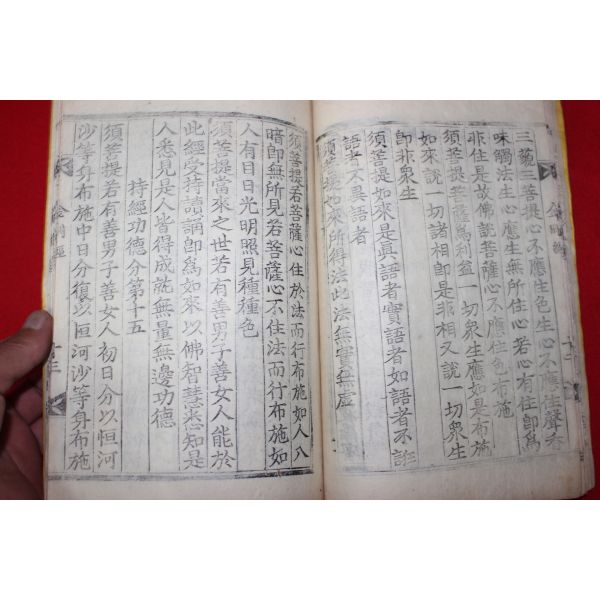 三菩提心不應住色生心不應住聲香
味觸法生心應生無所住心若心有住卽爲
非住是故佛說菩薩心不應住色布施
須菩提菩薩爲利益一切衆生應如是布施
如來說一切諸相卽是非相又說一切衆生
卽非衆生
須菩提如來是眞語者實語者如語者不誑
語者不異語者
須菩提如來所得法此法無實無虛
須菩提若菩薩心住於法而行布施如人入
暗卽無所見若菩薩心不住法而行布施如
人有目日光明照見種種色
須菩提當來之世若有善男子善女人能於
此經受持讀誦卽爲如來以佛智慧悉知是
人悉見是人皆得成就無量無邊功德
持經功德分第十五
須菩提若有善男子善女人初日分以恒河
沙等身布施中日分復以恒河沙等身布施